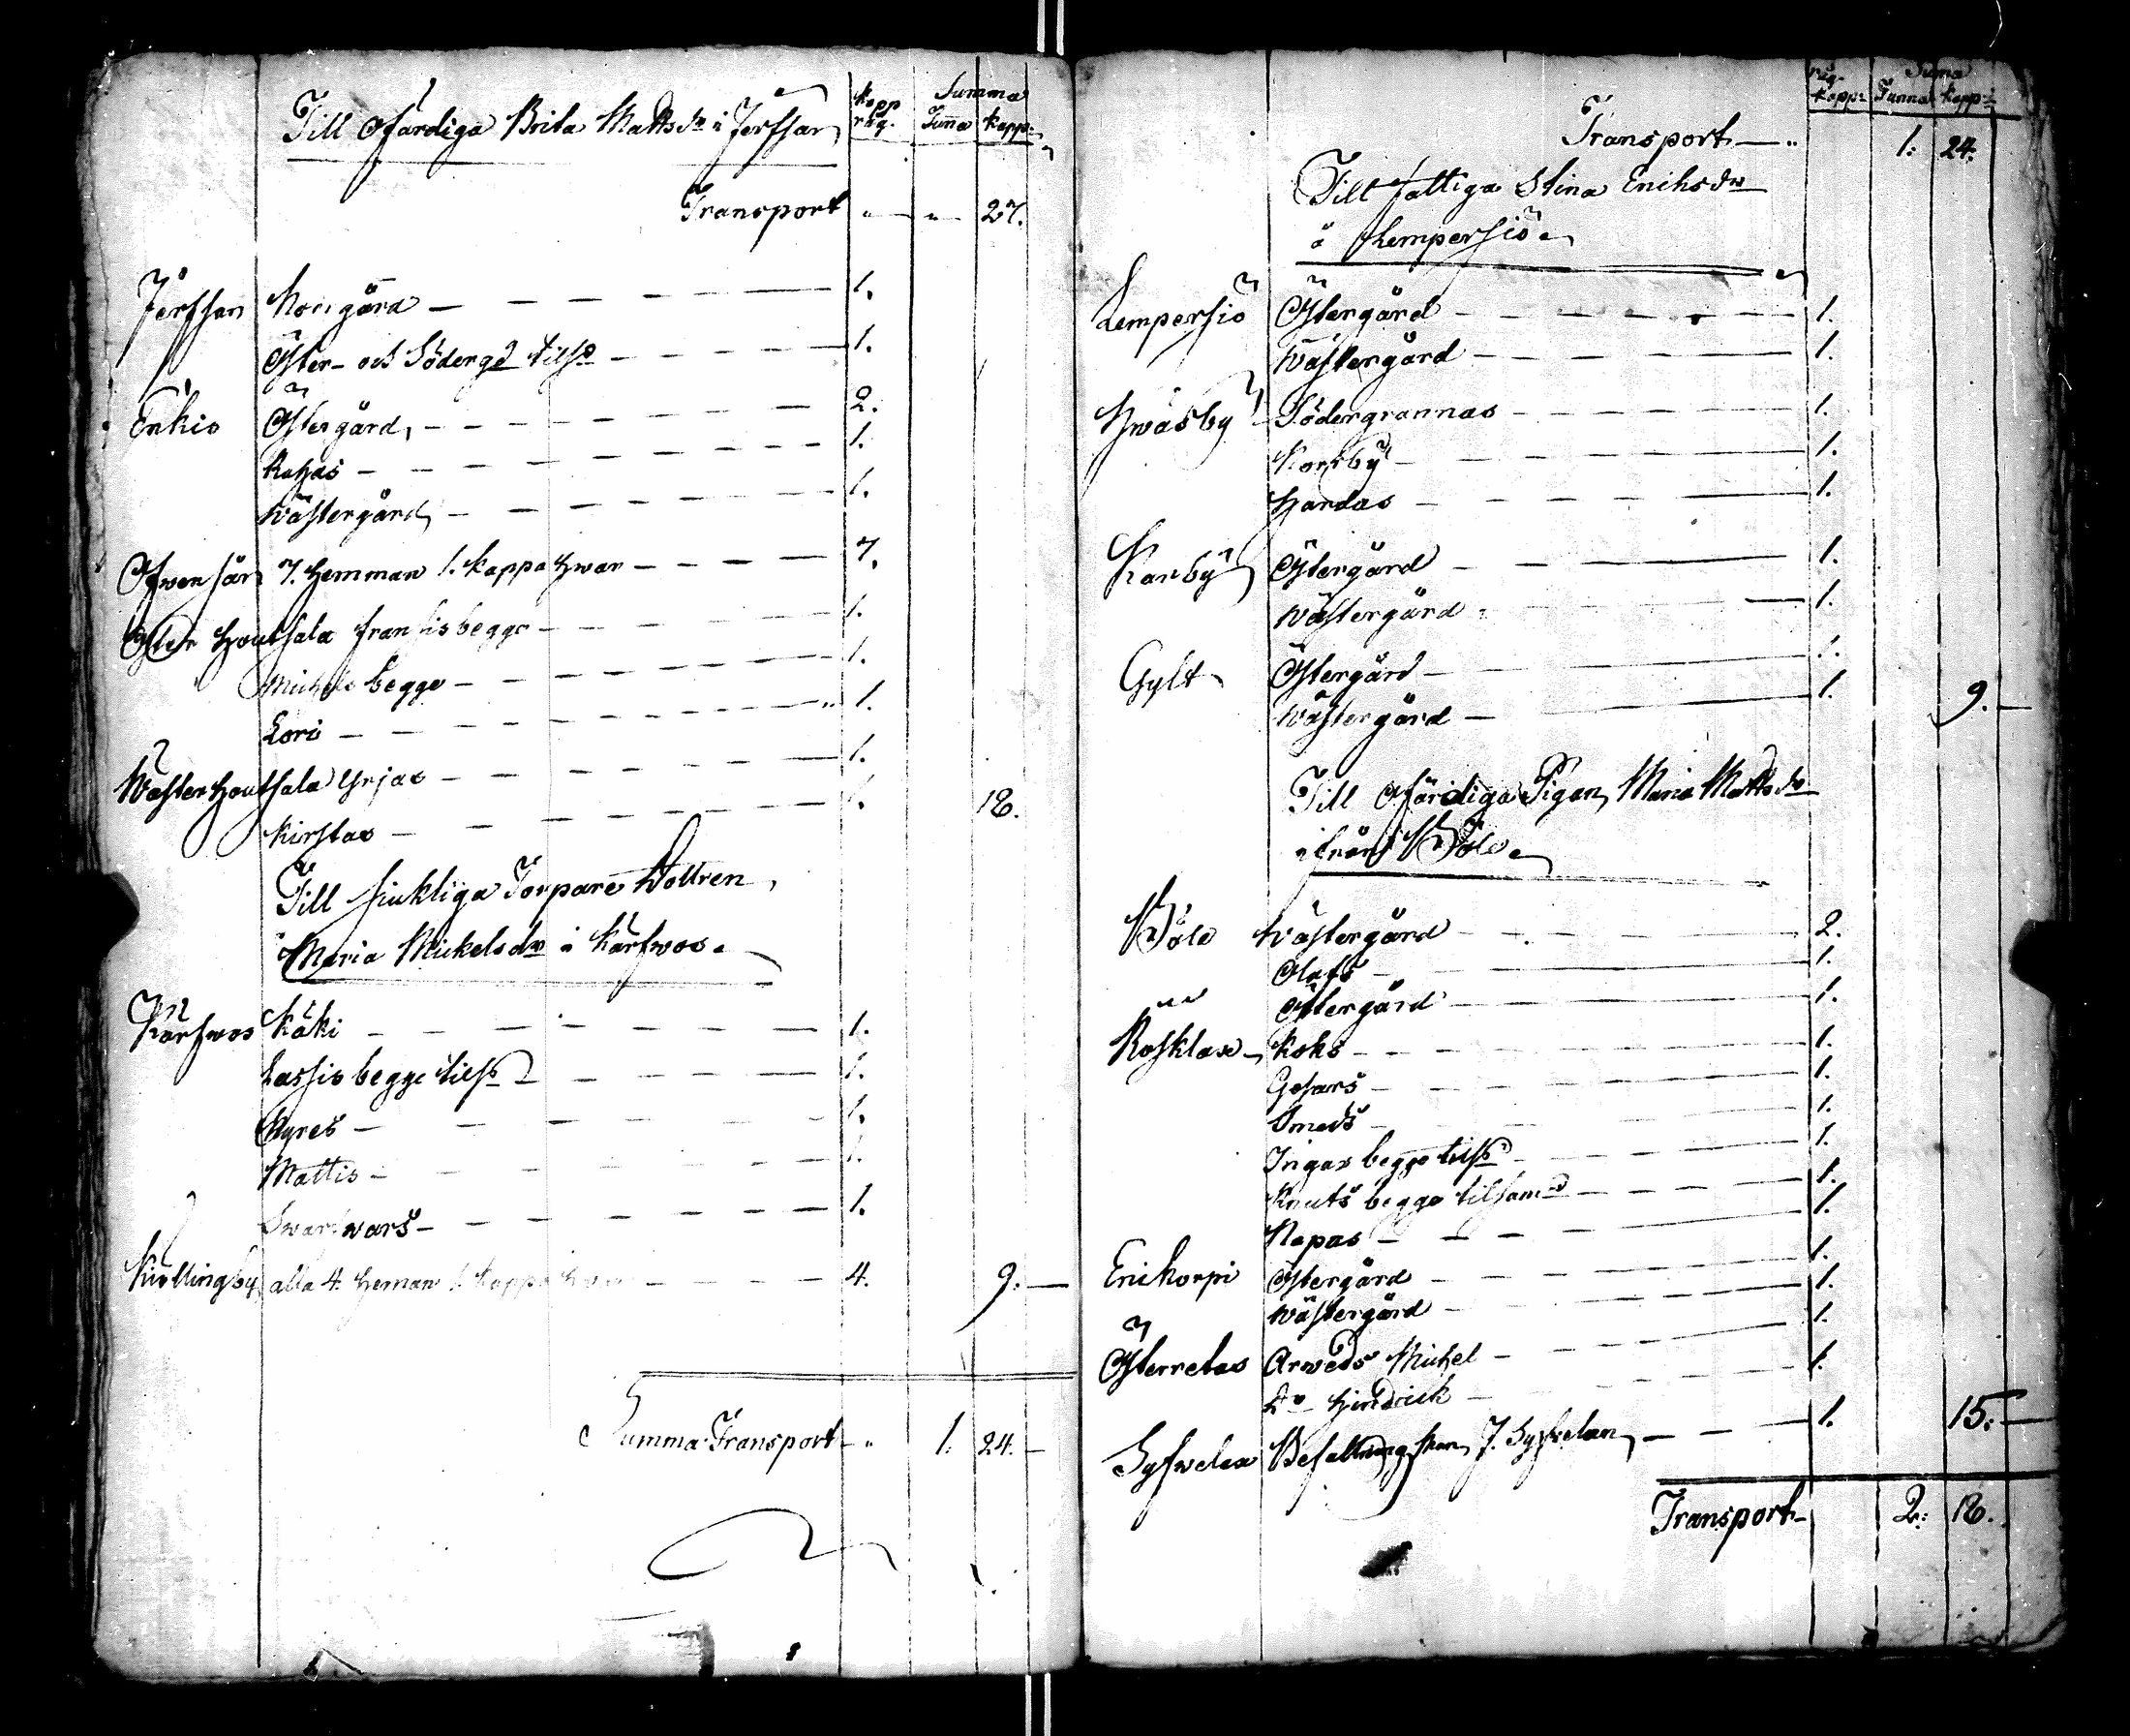 Kapp råg. Summa
Tunna Kapp:
Till Ofärdiga Brita Mattsdr i Jerfsar
Transport " " 27.
Jerfsar Norrgård 1.
Öster- och Södergd tilsd 1.
Enkis Östergård 2.
Rasas 1.
Wästergård 1.
Ofwensår 7. Hemman 1. kappa hwar 7.
Öster Houtsala fransis begge 1.
Mickels begge 1.
Lori " 1.
Wäster Houtsala Yrjas 1.
Kirstas 1. 18.
Till siukliga Torpare Dottren
Maria Mickelsdr i Kärfwos.
Kärfwos Käki 1.
Lassis begge tilsd 1.
Kyres 1.
Mattis 1.
Swartwars 1.
Kivllingby alla 4. Heman 1. kappa hwar 4. 9.
Summa Transport " 1. 24.
råg- Kapp: Suma
Tunna Kapp:
Transport " 1. 24.
Till fattiga Stina Eriksdr
å Lempersiö
Lempersiö Östergård 1.
Wästergård 1.
Hwäsby Södergrannas 1.
Norrby 1.
Handas 1.
Karby Östergård 1.
Wästergård 1.
Gylt Östergård 1.
Wästergård 1. 9.
Till Ofärdiga Pigan Maria Mattsdr
ifrån Böle
Böle Wästergård 2.
Olofs 1.
Östergård 1.
Rosklax Koks 1.
Gosars 1.
Smeds 1.
Ingas begge tilsd 1.
Knuts begge tilsamd 1.
Napas 1.
Erikorpi Östergård 1.
Wästergård 1.
Österretas Arweds Mickel 1.
Do Hindrick 1.
Syfwelax Befallningsman J. Syfwelan 1. 15.
Transport 2. 18.